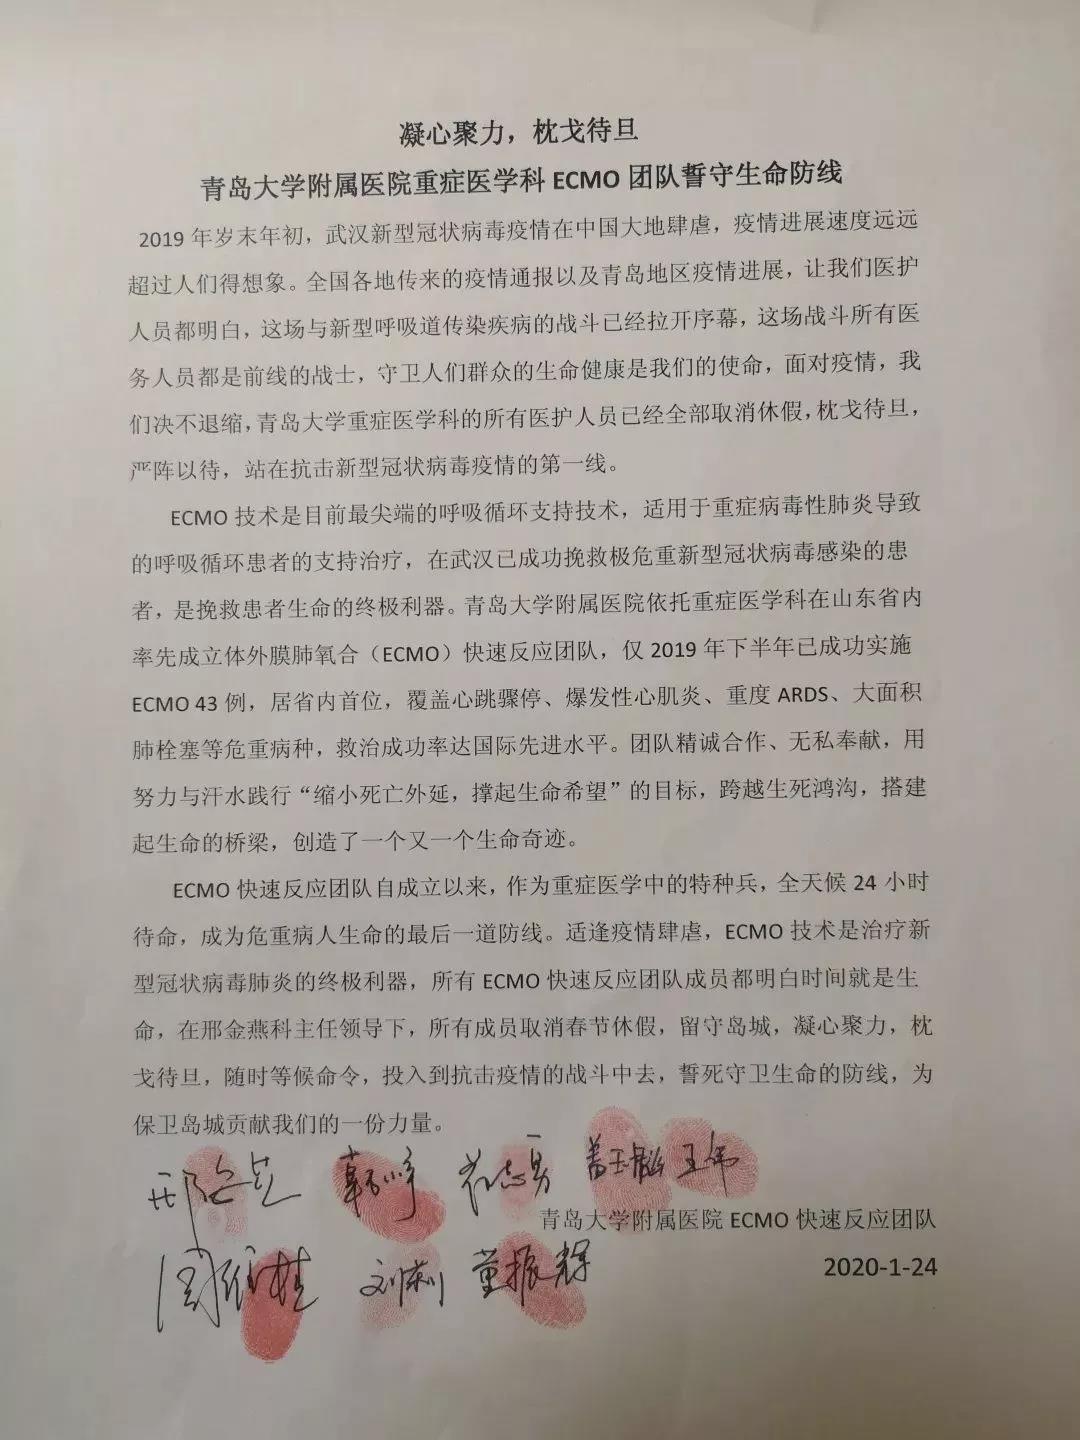 凝心聚力，枕戈待旦
青岛大学附属医院重症医学科 ECMO 团队誓守生命防线
2019 年岁末年初，武汉新型冠状病毒疫情在中国大地肆虐，疫情进展速度远远
超过人们得想象。全国各地传来的疫情通报以及青岛地区疫情进展，让我们医护
人员都明白，这场与新型呼吸道传染疾病的战斗已经拉开序幕，这场战斗所有医
务人员都是前线的战士，守卫人们群众的生命健康是我们的使命，面对疫情，我
们决不退缩，青岛大学重症医学科的所有医护人员已经全部取消休假，枕戈待旦，
严阵以待，站在抗击新型冠状病毒疫情的第一线。
ECMO 技术是目前最尖端的呼吸循环支持技术，适用于重症病毒性肺炎导致
的呼吸循环患者的支持治疗，在武汉已成功挽救极危重新型冠状病毒感染的患
者，是挽救患者生命的终极利器。青岛大学附属医院依托重症医学科在山东省内
率先成立体外膜肺氧合（ECMO）快速反应团队，仅 2019 年下半年已成功实施
ECMO 43 例，居省内首位，覆盖心跳骤停、爆发性心肌炎、重度 ARDS、大面积
肺栓塞等危重病种，救治成功率达国际先进水平。团队精诚合作、无私奉献，用
努力与汗水践行“缩小死亡外延，撑起生命希望”的目标，跨越生死鸿沟，搭建
起生命的桥梁，创造了一个又一个生命奇迹。
ECMO 快速反应团队自成立以来，作为重症医学中的特种兵，全天候 24 小时
待命，成为危重病人生命的最后一道防线。适逢疫情肆虐，ECMO 技术是治疗新
型冠状病毒肺炎的终极利器，所有 ECMO 快速反应团队成员都明白时间就是生
命，在邢金燕科主任领导下，所有成员取消春节休假，留守岛城，凝心聚力，枕
戈待旦，随时等候命令，投入到抗击疫情的战斗中去，誓死守卫生命的防线，为
保卫岛城贡献我们的一份力量。
王伟
青岛大学附属医院 ECMO 快速反应团队
董振辉
2020-1-24